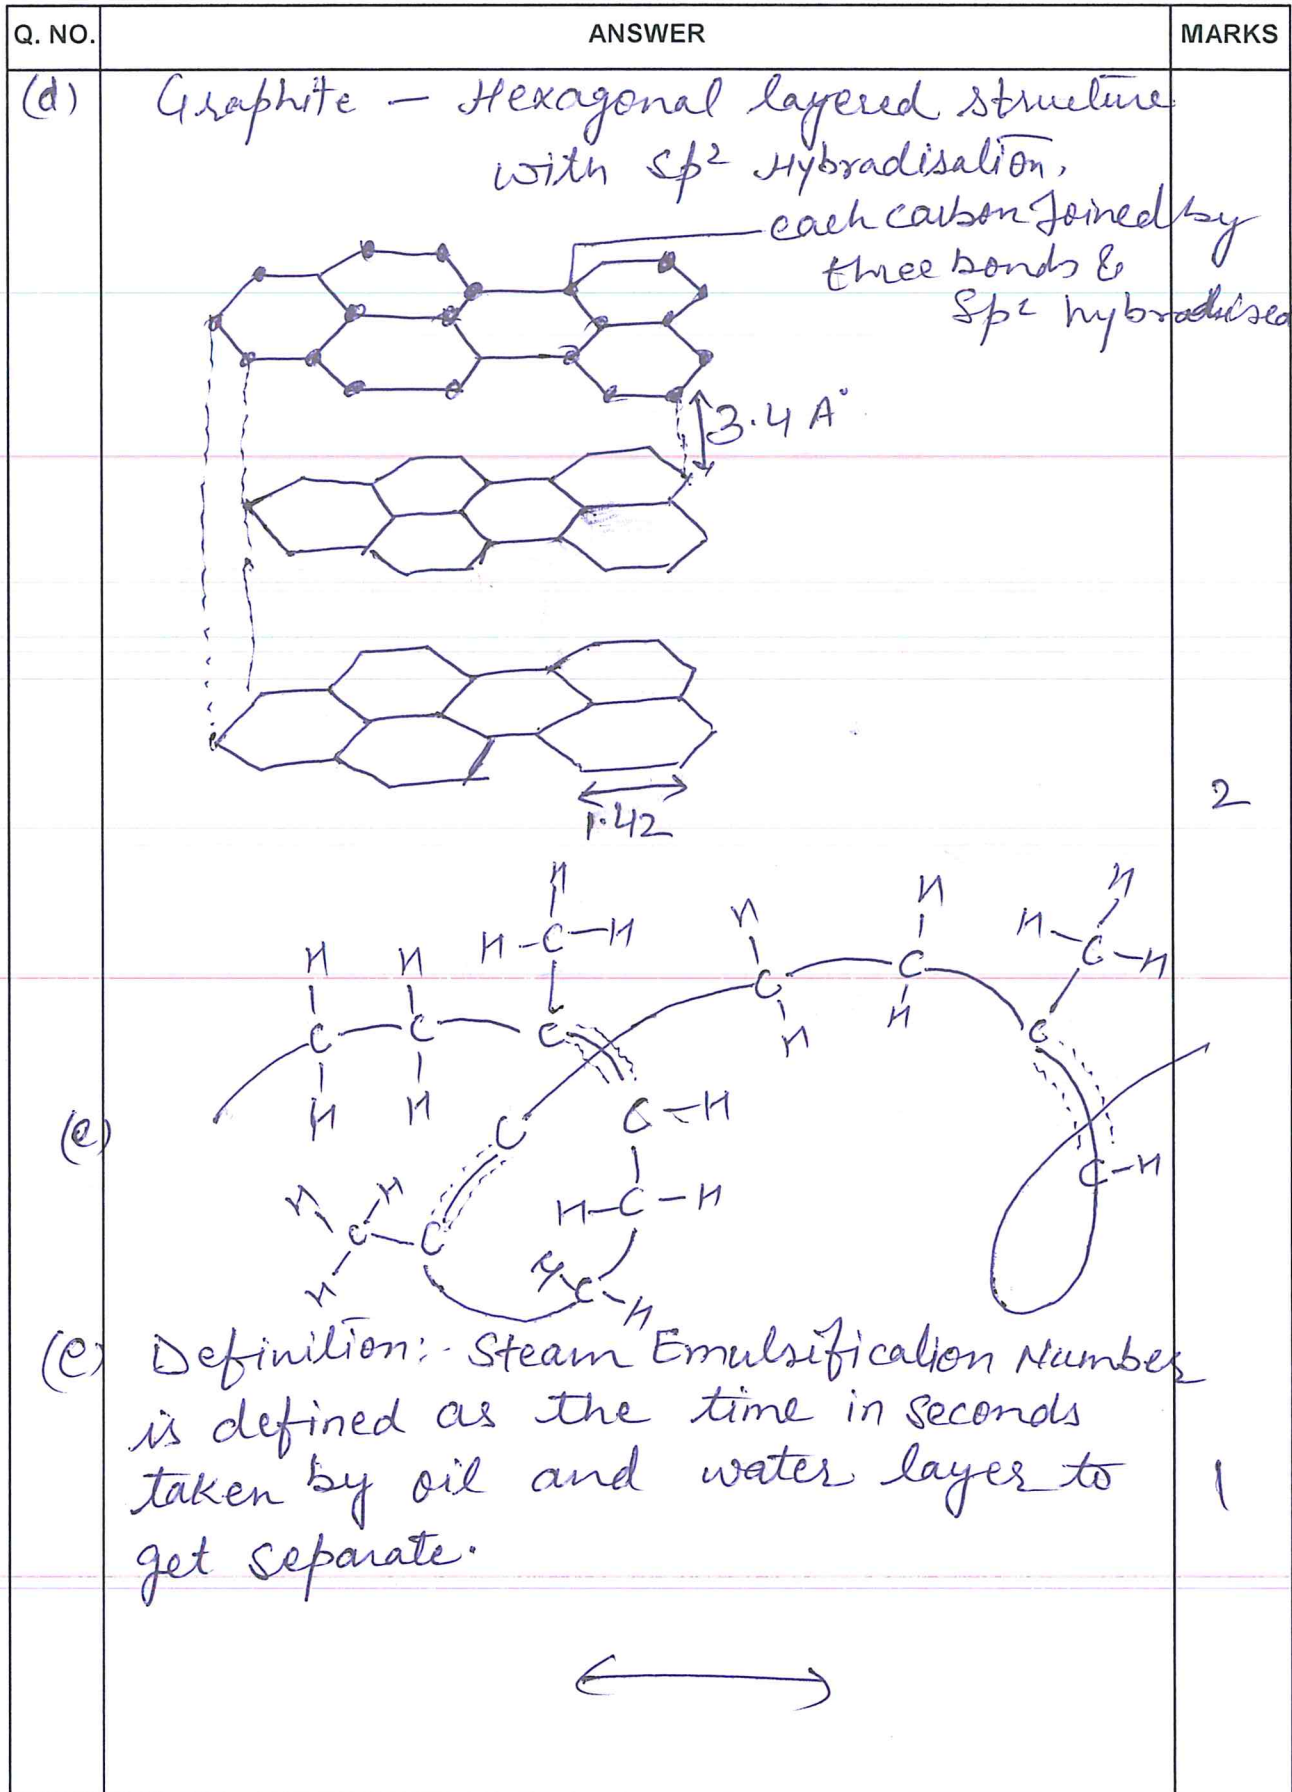 Q. NO. ANSWER MARKS
(d) Graphite — Hexagonal layered structure
with Sp² Hybradisation,
each carbon Joined by
three bonds &
Sp² hybradised
3.4 A°
1.42
2
H
H H H-C-H H H H H
C-H
C C C C C C
H H H H
C-H
(e)
C
C-H
H H H-C-H
C-C
H H C-H
(e) Definition:- Steam Emulsification Number
is defined as the time in seconds
taken by oil and water layer to
1
get separate.